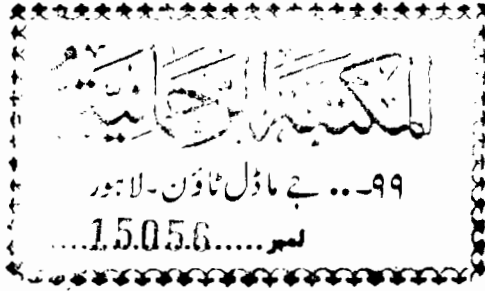 المکتبۃ الرحمانیۃ
۹۹۔۔۔ جے ماڈل ٹاؤن۔ لاہور
نمبر.....15056....